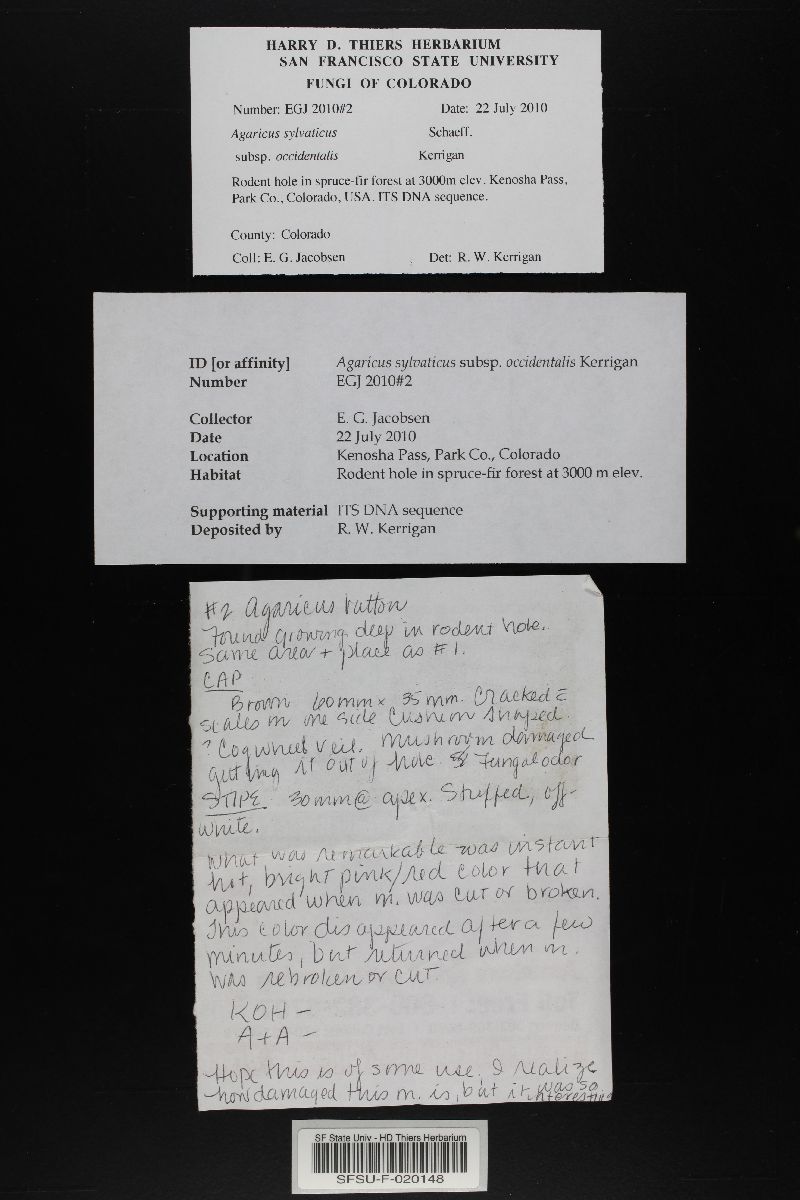 HARRY D. THIERS HERBARIUM
SAN FRANCISCO STATE UNIVERSITY
FUNGI OF COLORADO
Number: EGJ 2010#2 Date: 22 July 2010
Agaricus sylvaticus Schaeff.
subsp. occidentalis Kerrigan
Rodent hole in spruce-fir forest at 3000m elev. Kenosha Pass,
Park Co., Colorado, USA. ITS DNA sequence.
County: Colorado
Coll: E. G. Jacobsen Det: R. W. Kerrigan
ID [or affinity] Agaricus sylvaticus subsp. occidentalis Kerrigan
Number EGJ 2010#2
Collector E. G. Jacobsen
Date 22 July 2010
Location Kenosha Pass, Park Co., Colorado
Habitat Rodent hole in spruce-fir forest at 3000 m elev.
Supporting material ITS DNA sequence
Deposited by R. W. Kerrigan
#2 Agaricus button
Found growing deep in rodent hole.
Same area + place as #1.
CAP
Brown 60mm x 35mm. Cracked c̄
scales on one side Cushion shaped.
? Cogwheel veil. Mushroom damaged
getting it out of hole. Fungal odor
STIPE 30mm @ apex. Stuffed, off-
white.
What was remarkable was instant
hot, bright pink/red color that
appeared when m. was cut or broken.
This color disappeared after a few
minutes, but returned when m.
was rebroken or cut.
KOH -
A+A -
Hope this is of some use. I realize
how damaged this m. is, but it was so
interesting
SF State Univ - HD Thiers Herbarium
SFSU-F-020148